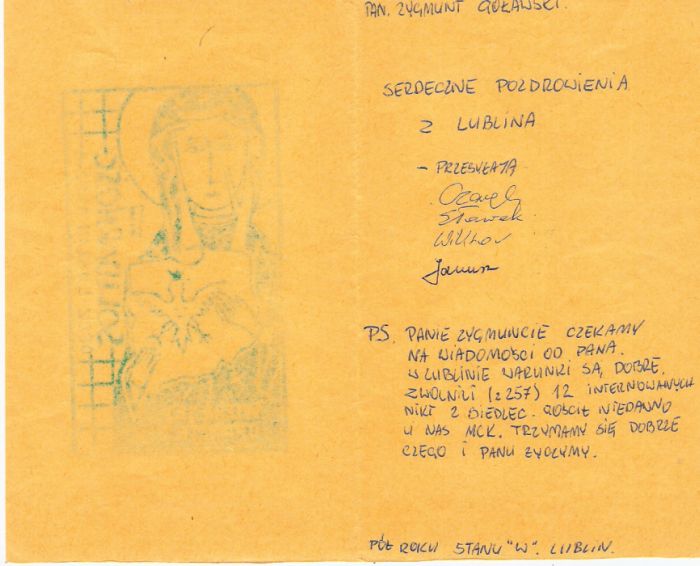 PAN. ZYGMUNT GOŁAWSKI.
SERDECZNE POZDROWIENIA
Z LUBLINA
- PRZESYŁAJĄ
Sławek
Wiktor
Janusz
PS. PANIE ZYGMUNCIE CZEKAMY
NA WIADOMOŚCI OD PANA.
W LUBLINIE WARUNKI SĄ DOBRE.
ZWOLNILI (z 257) 12 INTERNOWANYCH
NIKT Z SIEDLEC. GOŚCIŁ NIEDAWNO
U NAS MCK. TRZYMAMY SIĘ DOBRZE
CZEGO I PANU ŻYCZYMY.
PÓŁ ROKU STANU "W". LUBLIN.